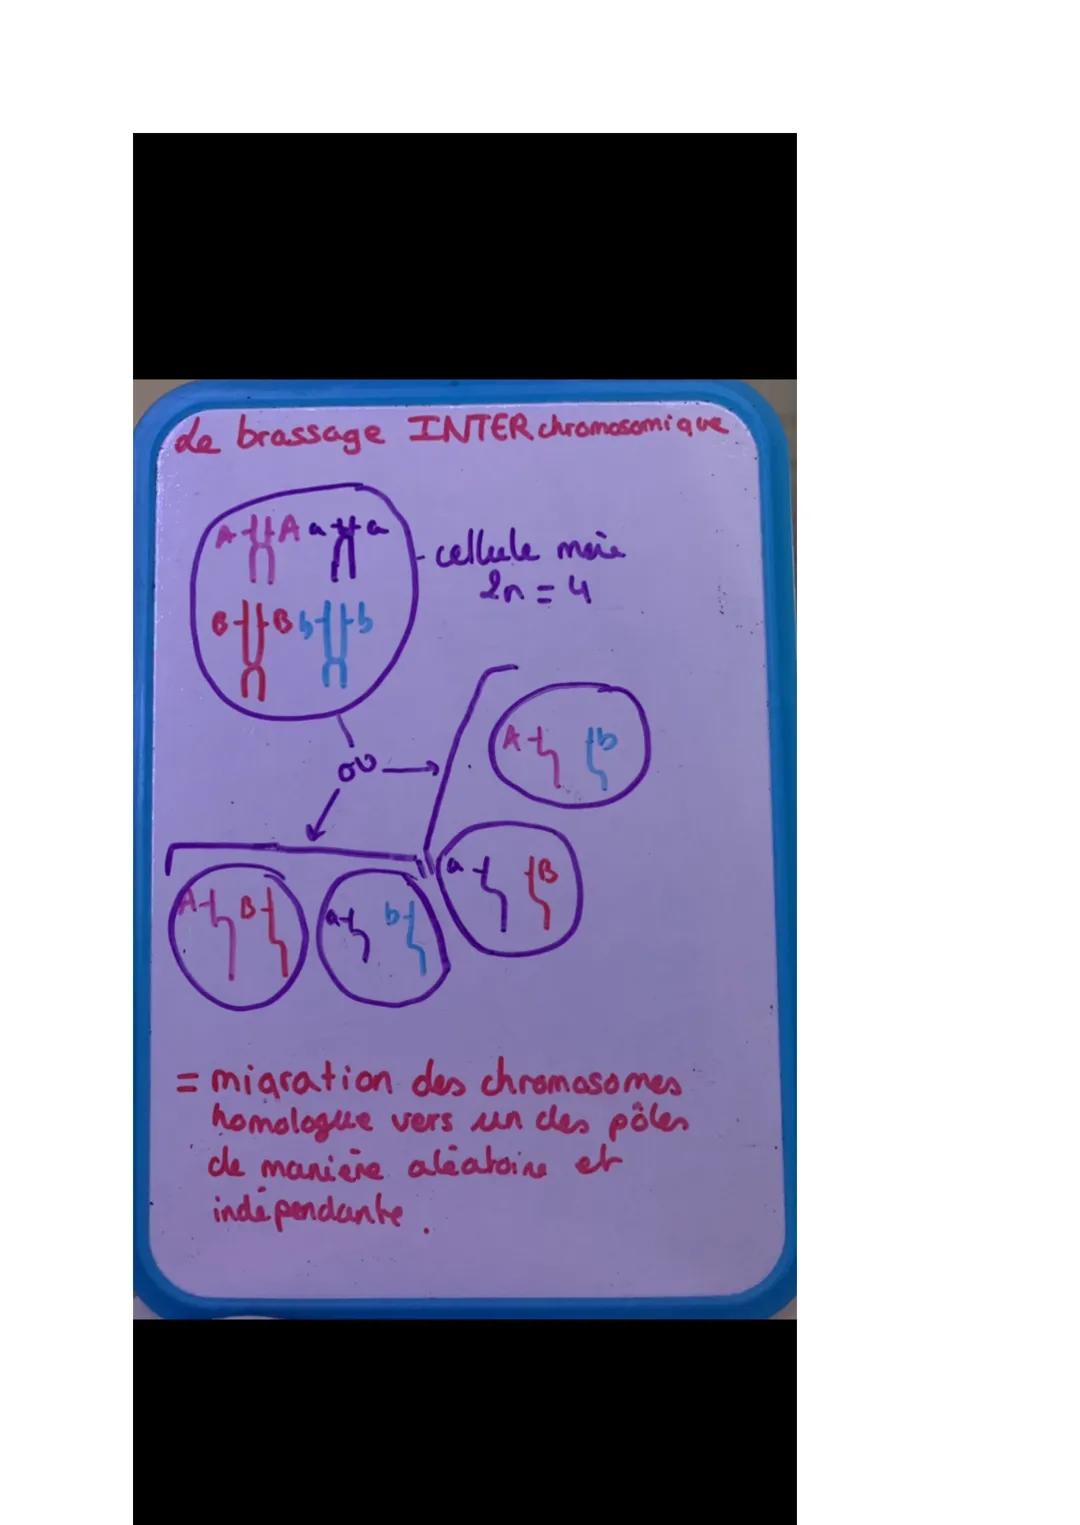 Le brassage INTERchromosomique
A A a a
cellule mère
2n = 4
B B b b
ou
A b
a B
A B a b
= migration des chromosomes
homologue vers un des pôles
de manière aléatoire et
indépendante.